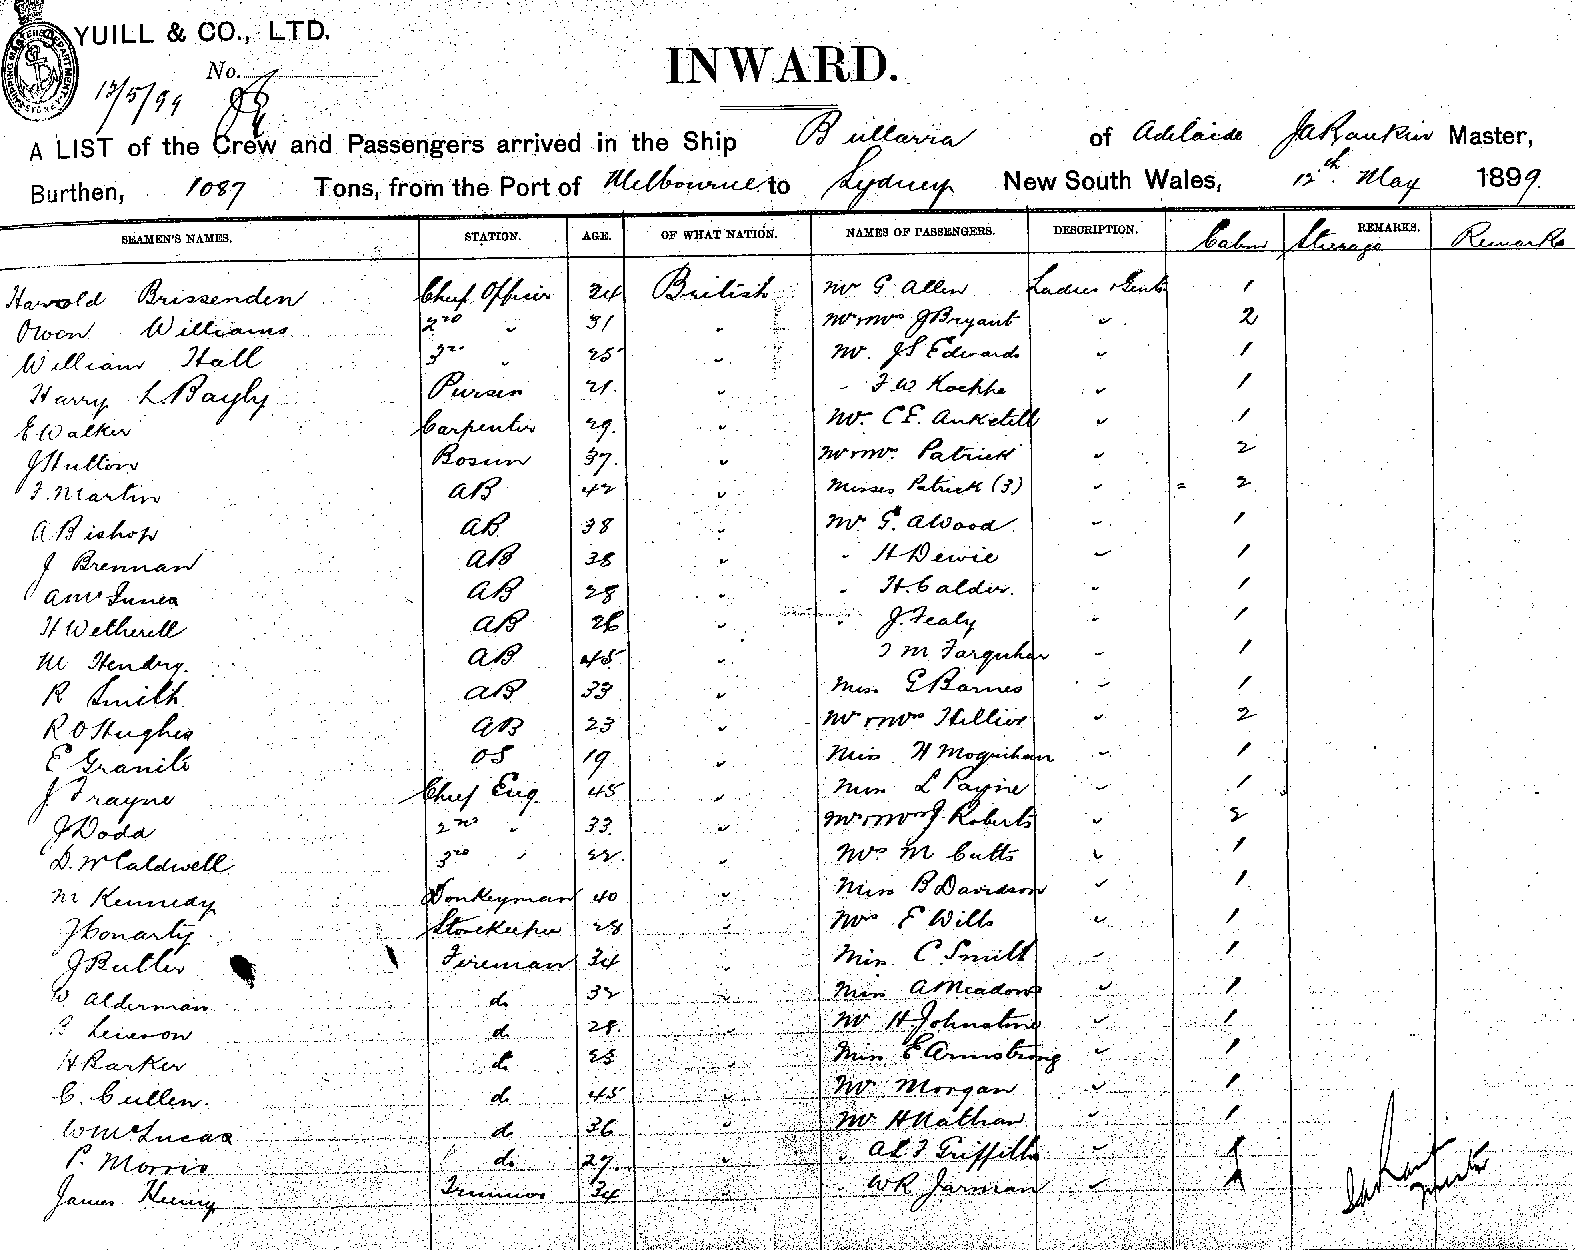 YUILL & CO., LTD.
No.
12/5/99
INWARD.
A LIST of the Crew and Passengers arrived in the Ship Bullarra of Adelaide JA Rankin Master,
Burthen, 1087 Tons, from the Port of Melbourne to Sydney New South Wales, 12th May 1899.
SEAMEN'S NAMES. STATION. AGE. OF WHAT NATION. NAMES OF PASSENGERS. DESCRIPTION. Cabin Steerage REMARKS. Remarks
Harold Brissenden Chief Officer 24 British Mr G Allen Ladies & Gents 1
Owen Williams 2nd " 31 " Mr & Mrs J Bryant " 2
William Hall 3rd " 25 " Mr. JS Edwards " 1
Harry L Bayly Purser 21 " " F W " 1
E Walker Carpenter 29 " Mr. C E. Anketell " 1
J Hutton Bosun 37 " Mr & Mrs. Patrick " 2
F. Martin AB 42 " Misses Patrick (3) " = 2
A Bishop AB 38 " Mr G. A Wood " 1
J Brennan AB 38 " " H Dewie " 1
A McInnes AB 28 " " H. Calder. " 1
H Wetherell AB 26 " " J. Fealy " 1
M Hendry. AB 45 " M Farquhar " 1
R Smith AB 33 " Miss G Barnes " 1
R O Hughes AB 23 " Mr & Mrs Hillier " 2
E Granite OS 19 " Miss H " 1
J Frayne Chief Eng. 45 " Miss L Payne " 1
J Dodd 2nd " 33 " Mr & Mrs J. Roberts " 2
D. McCaldwell 3rd " 22 " Mrs M Cutts " 1
M Kennedy Donkeyman 40 " Miss B Davidson " 1
J Conarty Storekeeper 28 " Mrs E Wills " 1
J Butler Fireman 34 " Miss C. Smith " 1
W Alderman do 32 " Miss A Meadows " 1
do 28 " Mr H Johnstone " 1
H Barker do 25 " Miss E Armstrong " 1
C. Cullen. do 45 " Mr Morgan " 1
W McLucas do 36 " Mr H Nathan " 1
P. Morris do 27 " " A L F Griffiths " 1
James Henry Trimmer 34 " " W R Jarman " 1